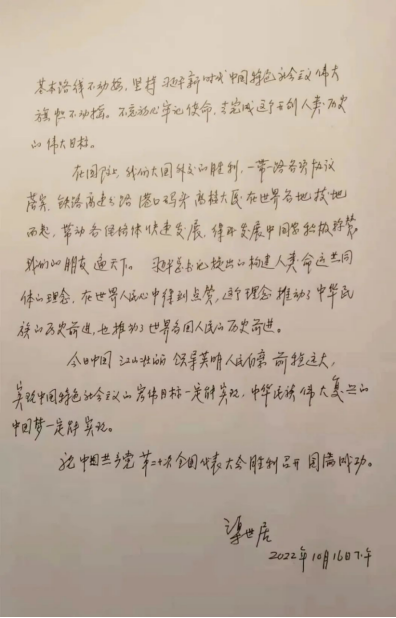 基本路线不动摇，坚持习近平新时代中国特色社会主义伟大
旗帜不动摇。不忘初心牢记使命，去完成这个开创人类历史
的伟大目标。
在国际上，我们大国外交的胜利，一带一路各项协议
落实，铁路高速公路港口码头高楼大厦在世界各地拔地
而起，带动各国经济快速发展，得到发展中国家积极称赞，
我们的朋友遍天下。习近平总书记提出的构建人类命运共同
体的理念，在世界人民心中得到点赞，这个理念推动了中华民
族的历史前进，也推动了世界各国人民的历史前进。
今日中国江山壮丽领导英明人民勤奋前程远大，
实现中国特色社会主义的宏伟目标一定能实现，中华民族伟大复兴的
中国梦一定能实现。
祝中国共产党第二十次全国代表大会胜利召开圆满成功。
梁世居
2022年10月16日下午